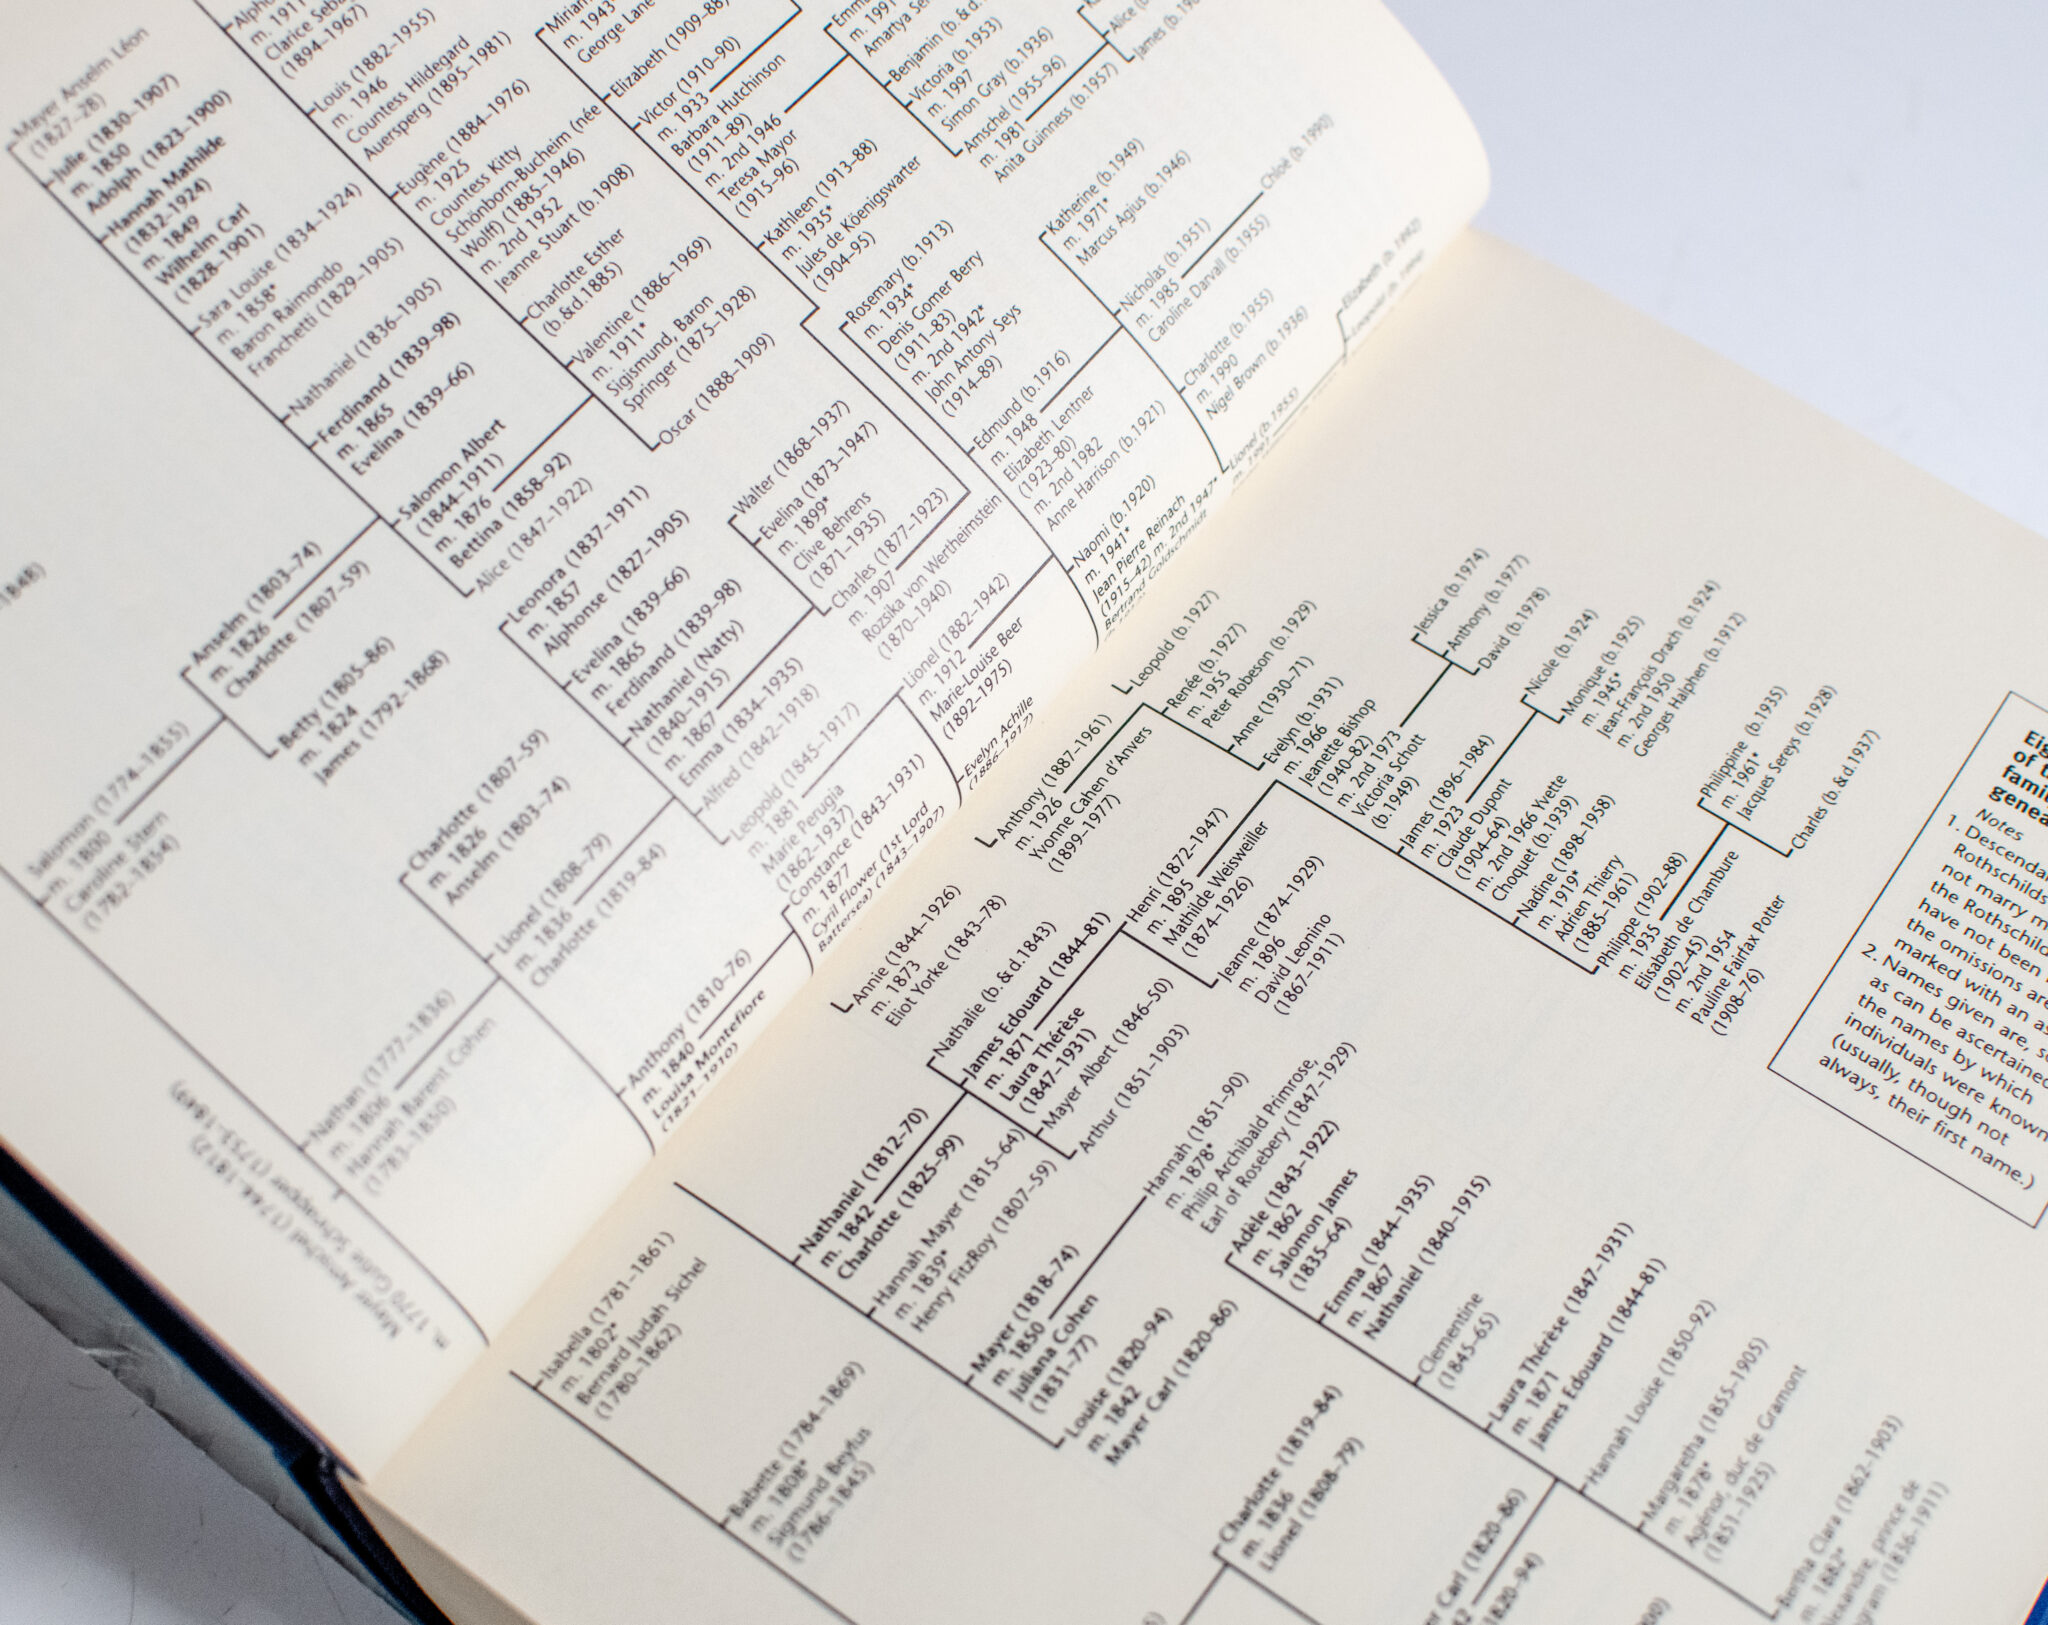 Mayer Anselm Léon
(1827–28)
Julie (1830–1907)
m. 1850
Adolph (1823–1900)
Hannah Mathilde
(1832–1924)
m. 1849
Wilhelm Carl
(1828–1901)
Sara Louise (1834–1924)
m. 1858*
Baron Raimondo
Franchetti (1829–1905)
Nathaniel (1836–1905)
Ferdinand (1839–98)
m. 1865
Evelina (1839–66)
Salomon Albert
(1844–1911)
m. 1876
Bettina (1858–92)
Alice (1847–1922)
m. 1911
(1894–1967)
Louis (1882–1955)
m. 1946
Countess Hildegard
Auersperg (1895–1981)
Eugène (1884–1976)
m. 1925
Countess Kitty
Schönborn-Bucheim (née
Wolff) (1885–1946)
m. 2nd 1952
Jeanne Stuart (b.1908)
Charlotte Esther
(b.&d.1885)
Valentine (1886–1969)
m. 1911*
Sigismund, Baron
Springer (1875–1928)
Oscar (1888–1909)
m. 1943*
George Lane
Elizabeth (1909–88)
Victor (1910–90)
m. 1933
Barbara Hutchinson
(1911–89)
m. 2nd 1946
Teresa Mayor
(1915–96)
Kathleen (1913–88)
m. 1935*
Jules de Köenigswarter
(1904–95)
m. 1991
Benjamin (b.&d.
Victoria (b.1953)
m. 1997
Simon Gray (b.1936)
Amschel (1955–96)
m. 1981
Anita Guinness (b.1957)
Alice (b.
James (b.
Rosemary (b.1913)
m. 1934*
Denis Gomer Berry
(1911–83)
m. 2nd 1942*
John Antony Seys
(1914–89)
Edmund (b.1916)
m. 1948
Elizabeth Lentner
(1923–80)
m. 2nd 1982
Anne Harrison (b.1921)
Naomi (b.1920)
m. 1941*
Jean Pierre Reinach
(1915–42) m. 2nd 1947*
Bertrand Goldschmidt
Katherine (b.1949)
m. 1971*
Marcus Agius (b.1946)
Nicholas (b.1951)
m. 1985
Caroline Darvall (b.1955)
Chloë (b.1990)
Charlotte (b.1955)
m. 1990
Nigel Brown (b.1936)
Lionel (b.1955)
m. 1991
Elizabeth (b.1992)
Leopold (b.
1848)
Anselm (1803–74)
m. 1826
Charlotte (1807–59)
Betty (1805–86)
m. 1824
James (1792–1868)
Salomon (1774–1855)
m. 1800
Caroline Stern
(1782–1854)
Leonora (1837–1911)
m. 1857
Alphonse (1827–1905)
Evelina (1839–66)
m. 1865
Ferdinand (1839–98)
Nathaniel (Natty)
(1840–1915)
m. 1867
Emma (1834–1935)
Alfred (1842–1918)
Leopold (1845–1917)
m. 1881
Marie Perugia
(1862–1937)
Walter (1868–1937)
Evelina (1873–1947)
m. 1899*
Clive Behrens
(1871–1935)
Charles (1877–1923)
m. 1907
Rozsika von Wertheimstein
(1870–1940)
Lionel (1882–1942)
m. 1912
Marie-Louise Beer
(1892–1975)
Evelyn Achille
(1886–1917)
Charlotte (1807–59)
m. 1826
Anselm (1803–74)
Lionel (1808–79)
m. 1836
Charlotte (1819–84)
Constance (1843–1931)
m. 1877
Cyril Flower (1st Lord
Battersea) (1843–1907)
Anthony (1810–76)
m. 1840
Louisa Montefiore
(1821–1910)
Nathan (1777–1836)
m. 1806
Hannah Barent Cohen
(1783–1850)
Mayer Amschel (1744–1812)
m. 1770 Gutle Schnapper (1753–1849)
Annie (1844–1926)
m. 1873
Eliot Yorke (1843–78)
Anthony (1887–1961)
m. 1926
Yvonne Cahen d'Anvers
(1899–1977)
Leopold (b.1927)
Renée (b.1927)
m. 1955
Peter Robeson (b.1929)
Anne (1930–71)
Evelyn (b.1931)
m. 1966
Jeanette Bishop
(1940–82)
m. 2nd 1973
Victoria Schott
(b.1949)
Jessica (b.1974)
Anthony (b.1977)
David (b.1978)
Nathalie (b.&d.1843)
James Edouard (1844–81)
m. 1871
Laura Thérèse
(1847–1931)
Mayer Albert (1846–50)
Arthur (1851–1903)
Henri (1872–1947)
m. 1895
Mathilde Weisweiller
(1874–1926)
Jeanne (1874–1929)
m. 1896
David Leonino
(1867–1911)
James (1896–1984)
m. 1923
Claude Dupont
(1904–64)
m. 2nd 1966 Yvette
Choquet (b.1939)
Nadine (1898–1958)
m. 1919*
Adrien Thierry
(1885–1961)
Philippe (1902–88)
m. 1935
Elisabeth de Chambure
(1902–45)
m. 2nd 1954
Pauline Fairfax Potter
(1908–76)
Nicole (b.1924)
Monique (b.1925)
m. 1945*
Jean-François Drach (b.1924)
m. 2nd 1950
Georges Halphen (b.1912)
Philippine (b.1935)
m. 1961*
Jacques Sereys (b.1928)
Charles (b.&d.1937)
Nathaniel (1812–70)
m. 1842
Charlotte (1825–99)
Hannah Mayer (1815–64)
m. 1839*
Henry FitzRoy (1807–59)
Mayer (1818–74)
m. 1850
Juliana Cohen
(1831–77)
Louise (1820–94)
m. 1842
Mayer Carl (1820–86)
Hannah (1851–90)
m. 1878*
Philip Archibald Primrose,
Earl of Rosebery (1847–1929)
Isabella (1781–1861)
m. 1802*
Bernard Judah Sichel
(1780–1862)
Babette (1784–1869)
m. 1808*
Sigmund Beyfus
(1786–1845)
Adèle (1843–1922)
m. 1862
Salomon James
(1835–64)
Emma (1844–1935)
m. 1867
Nathaniel (1840–1915)
Clementine
(1845–65)
Laura Thérèse (1847–1931)
m. 1871
James Edouard (1844–81)
Hannah Louise (1850–92)
Margaretha (1855–1905)
m. 1878*
Agénor, duc de Gramont
(1851–1925)
Bertha Clara (1862–1903)
m. 1882*
Alexandre, prince de
gram (1836–1911)
Charlotte (1819–84)
m. 1836
Lionel (1808–79)
er Carl (1820–86)
1820–94)
Eig
of t
famil
genea
Notes
1. Descenda
Rothschilds
not marry m
the Rothschild
have not been
the omissions are
marked with an as
2. Names given are, so
as can be ascertained
the names by which
individuals were known
(usually, though not
always, their first name.)